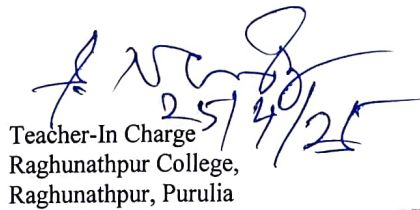 25/4/25
Teacher-In Charge
Raghunathpur College,
Raghunathpur, Purulia